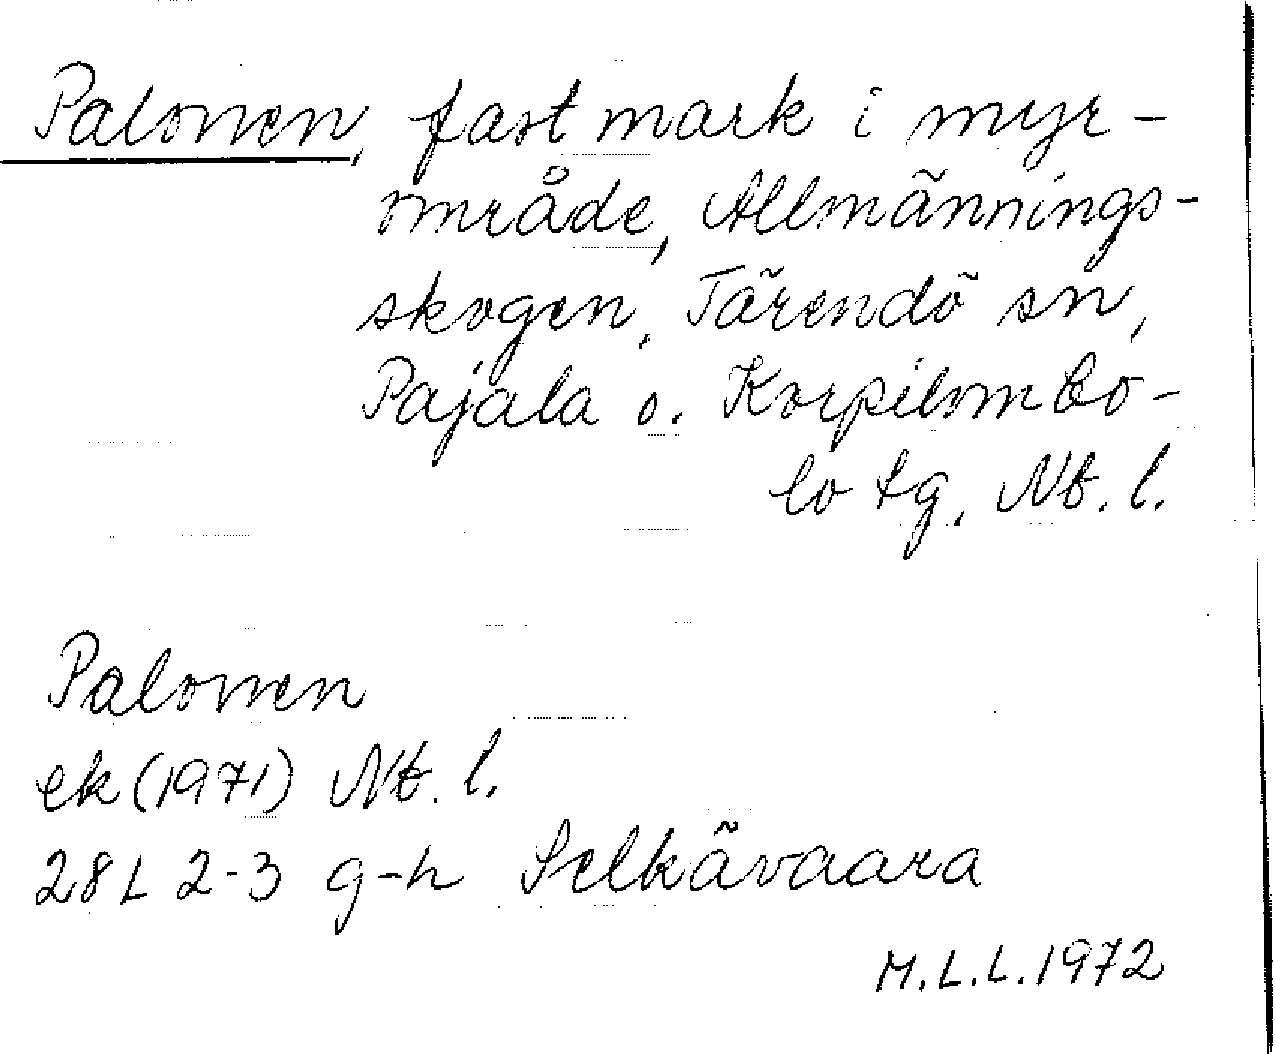 Palonen, fast mark i myr-
område, Allmännings-
skogen, Tärendö sn,
Pajala o. Korpilombo-
lo tg, Nb. l.
Palonen
ek (1971) Nb. l.
28 L 2-3 g-h Selkävaara
M.L.L. 1972